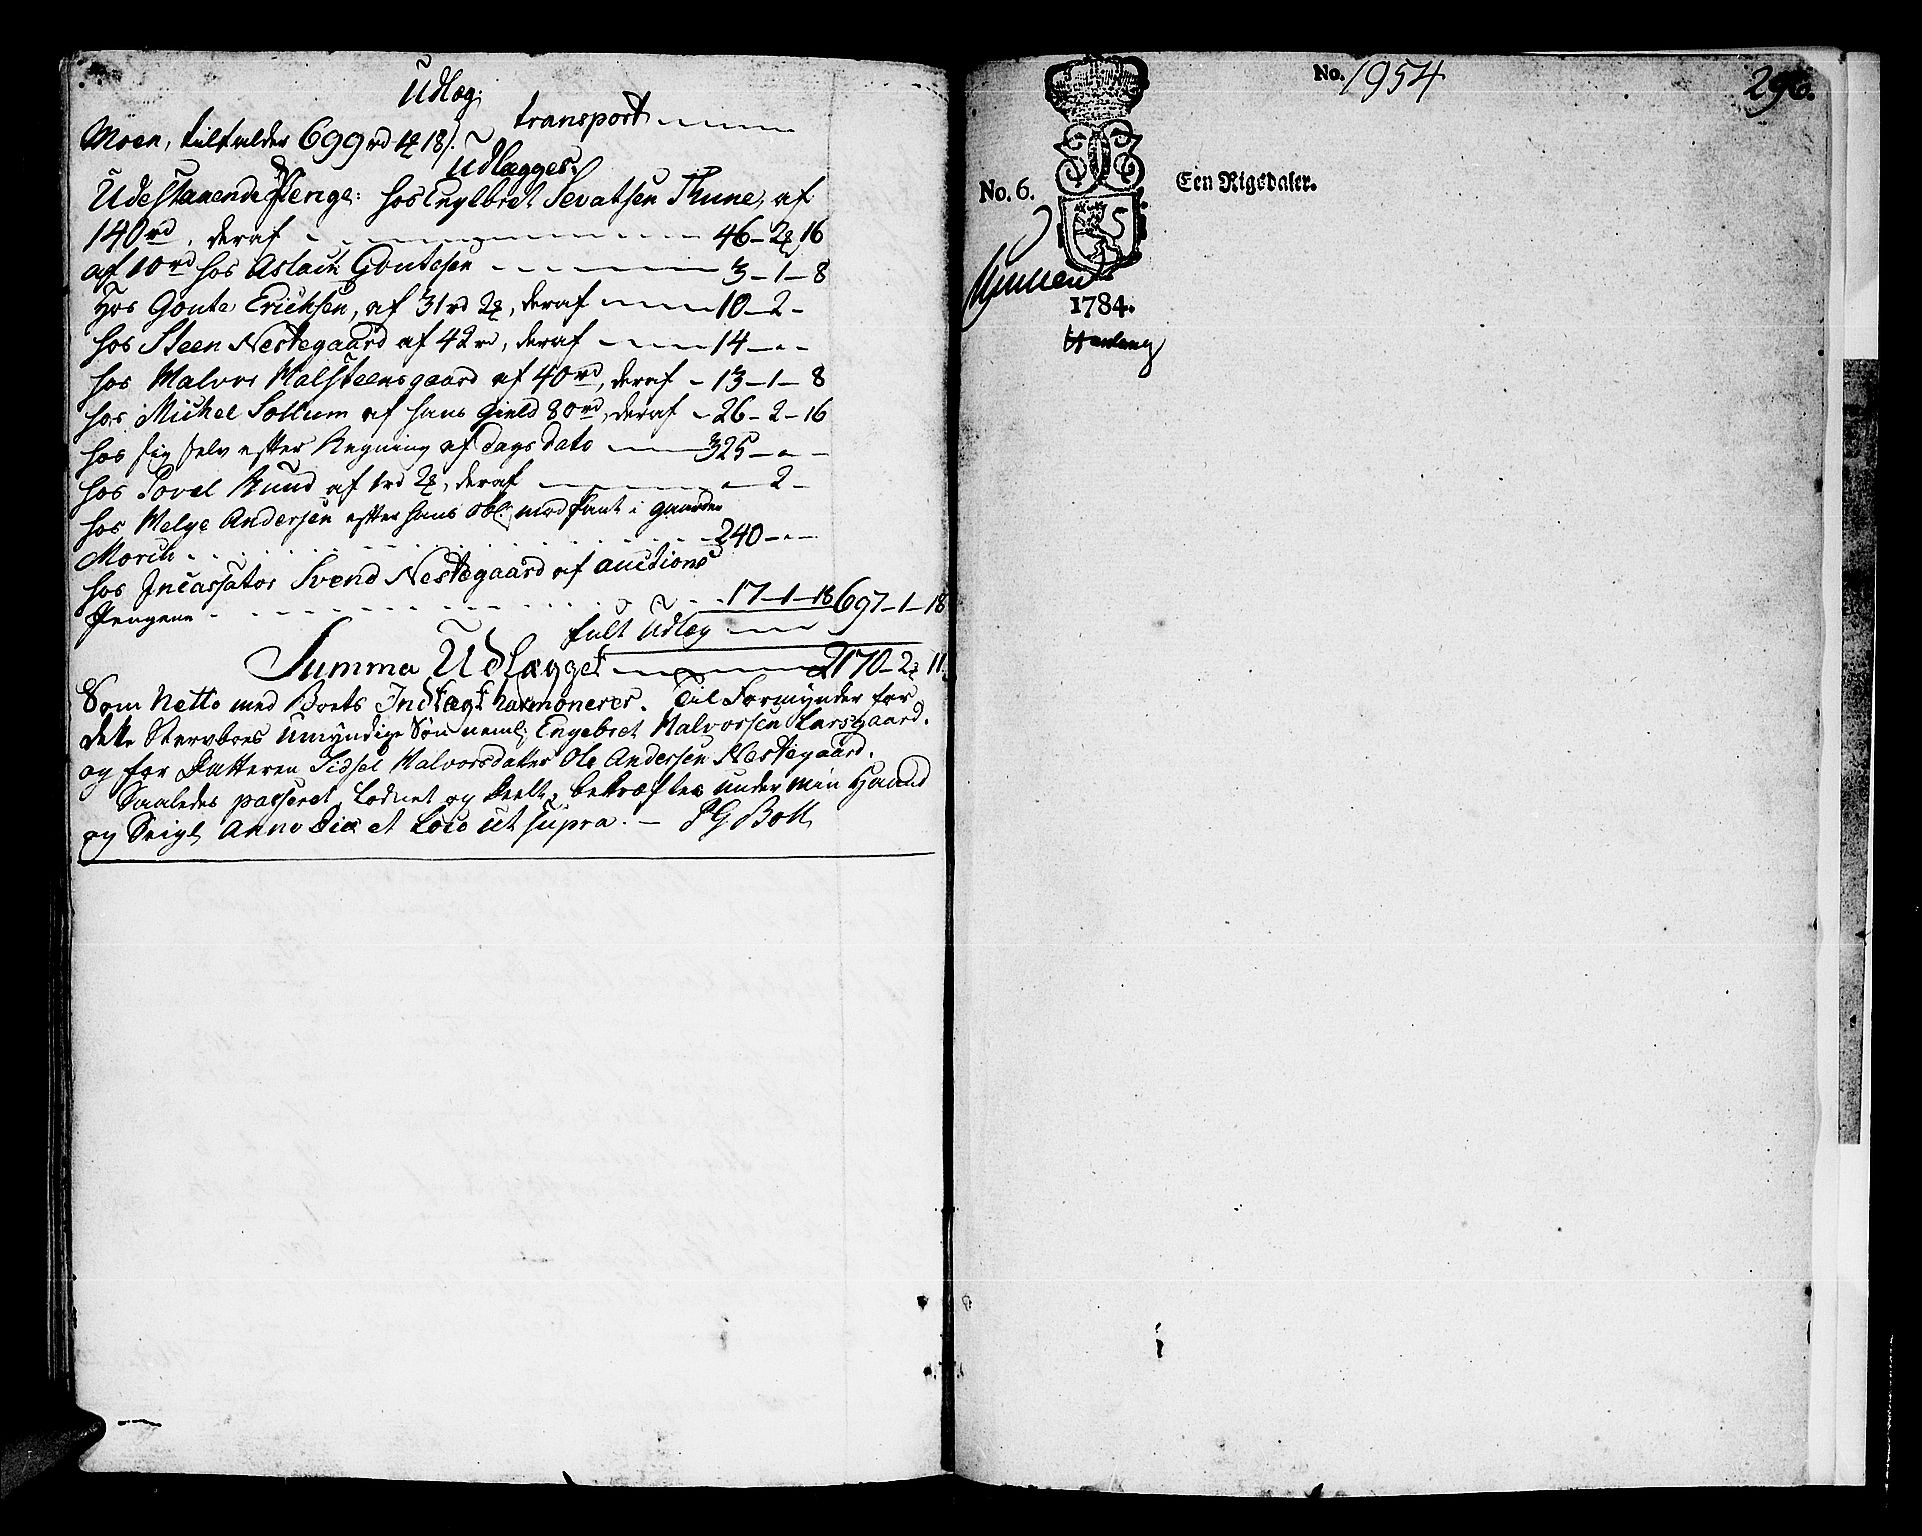 Udlæg:
transport
Moen, tilfalder 699 rd 1 18 s.
Udlægges:
Udestaaende Penge: hos Englbret Sevatsen Thune, af
140 rd, deraf 46 - 2 16
af 10 rd hos Aslach Gontesen 3 - 1 - 8
Hos Gonte Erichsen, af 31 rd 2, deraf 10 - 2 -
hos Steen Nestegaard af 42 rd, deraf 14 - - -
hos Halvor Halsteensgaard af 40 rd, deraf - 13 - 1 - 8
hos Michel Sollum af hans Gield 80 rd, deraf - 26 - 2 - 16
hos sig selv efter Regning af Dags Dato 325 - - -
hos Povel Ruud af 1 rd 2, deraf - 2 -
hos Helge Andersen efter hans Obl: med Pant i gaarden
Morch 240 - - -
hos Incassator Svend Nestegaard af auctions
Pengene 17 - 1 - 18 697 - 1 - 18
fult Udlæg
Summa Udlægget 2170 - 2 11.
Som Netto med Boets Indtægt harmonerer. Til Formynder for
dette Stervboes Umyndige Søn neml: Engebret Halvorsen Larsgaard.
og for Datteren Sidsel Halvorsdatter Ole Andersen Nestegaard.
Saaledes passeret, Lodnet og Deelt, bekræftes under min Haand
og Seigl Anno Die et Loco ut supra. - P G Boll
No. 1954
296.
No. 6.
Een Rigsdaler.
1784.